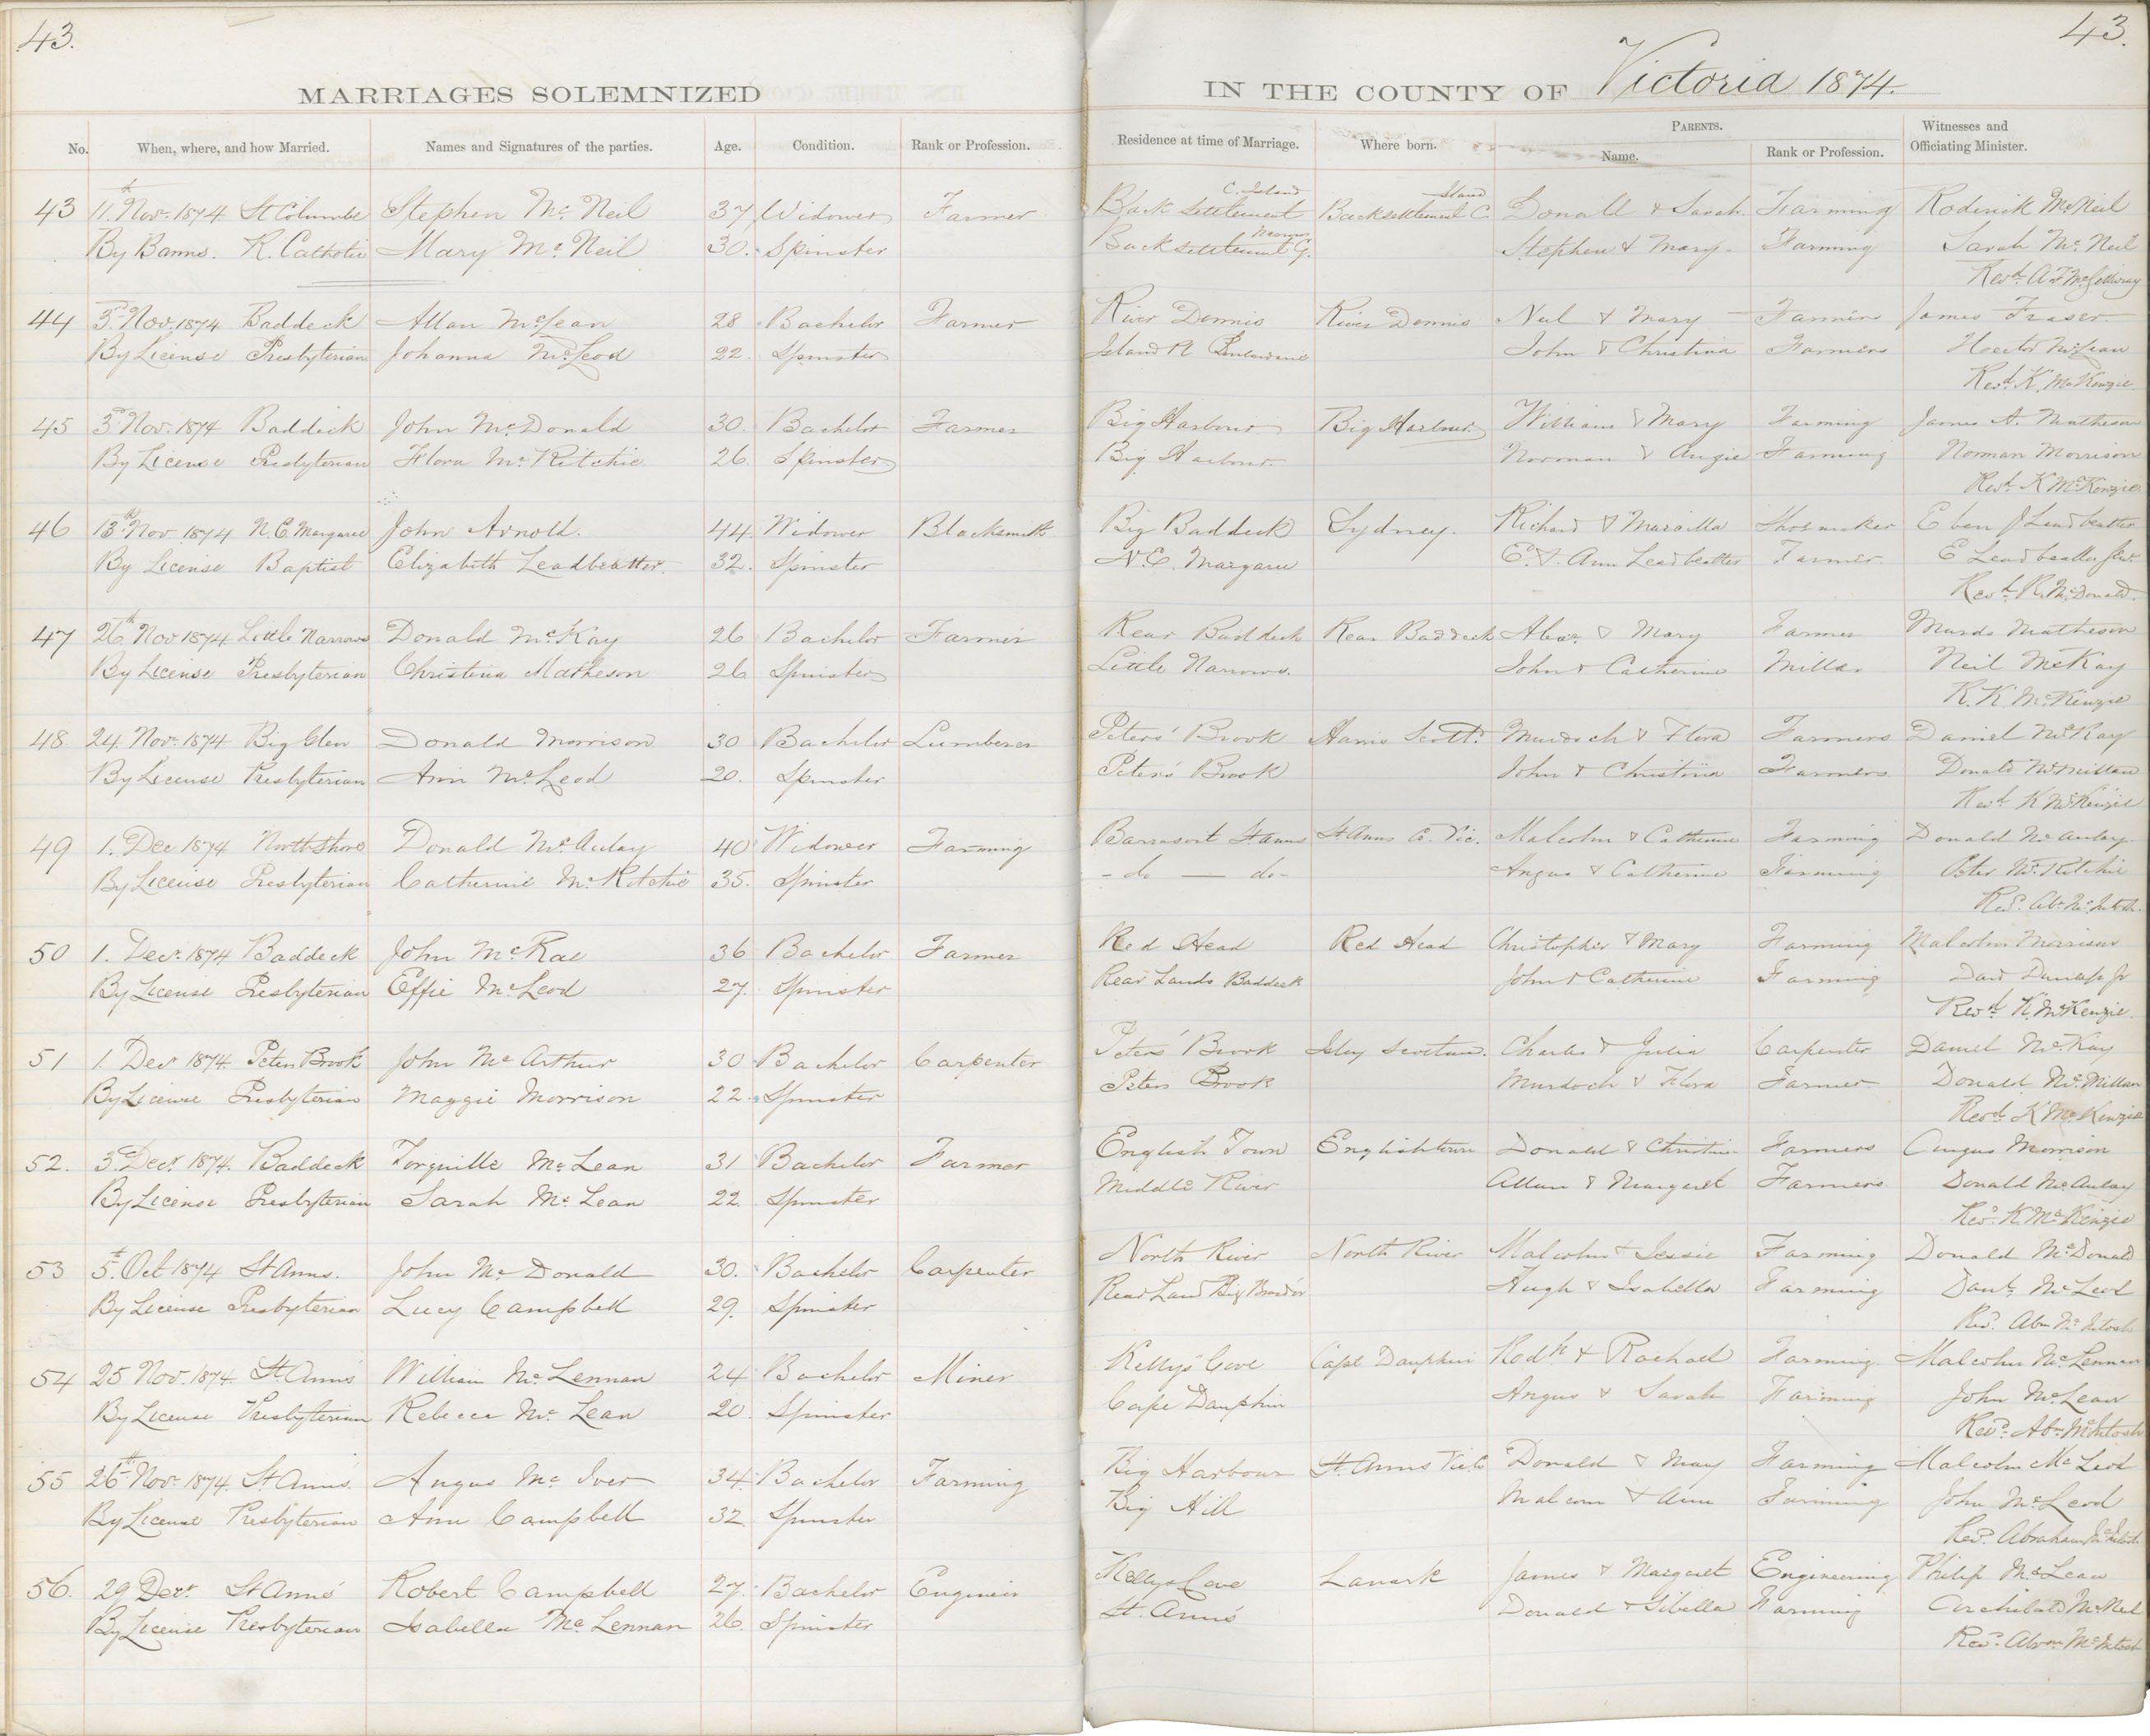 43.
MARRIAGES SOLEMNIZED
No. When, where, and how Married. Names and Signatures of the parties. Age. Condition. Rank or Profession.
43 11th Nov. 1874 St Columba Stephen Mc Neil 37 Widower Farmer
By Banns. R. Catholic Mary Mc Neil 30. Spinster
44 3rd Nov. 1874 Baddeck Allan McLean 28 Bachelor Farmer
By License Presbyterian Johanna McLeod 22. Spinster
45 3rd Nov. 1874 Baddeck John McDonald 30. Bachelor Farmer
By License Presbyterian Flora McRitchie 26. Spinster
46 13th Nov 1874 N.E. Margaree John Arnold. 44. Widower Blacksmith
By License Baptist Elizabeth Leadbeatter. 32. Spinster
47 26th Nov 1874 Little Narrows Donald McKay 26 Bachelor Farmer
By License Presbyterian Christina Matheson 26 Spinster
48. 24. Nov. 1874 Big Glen Donald Morrison 30 Bachelor Lumberer
By License Presbyterian Ann McLeod 20. Spinster
49 1. Dec 1874 North Shore Donald McAulay 40 Widower Farming
By License Presbyterian Catherine McRitchie 35. Spinster
50 1. Decr. 1874 Baddeck John McRae 36 Bachelor Farmer
By License Presbyterian Effie McLeod 27. Spinster
51 1. Decr 1874. Peters Brook John Mc Arthur 30 Bachelor Carpenter
By License Presbyterian Maggie Morrison 22. Spinster
52. 3. Decr. 1874. Baddeck Torquille McLean 31 Bachelor Farmer
By License Presbyterian Sarah McLean 22. Spinster
53 5. Oct 1874 St Anns. John McDonald 30. Bachelor Carpenter
By License Presbyterian Lucy Campbell 29. Spinster
54 25 Nov. 1874. St Anns William McLennan 24 Bachelor Miner
By License Presbyterian Rebecca McLean 20. Spinster
55 26th Nov. 1874. St Anns. Angus Mc Iver 34 Bachelor Farming
By License Presbyterian Ann Campbell 32 Spinster
56. 29 Decr. St Anns Robert Campbell 27. Bachelor Engineer
By License Presbyterian Isabella McLennan 26. Spinster
43.
IN THE COUNTY OF Victoria 1874.
PARENTS.
Residence at time of Marriage. Where born. Name. Rank or Profession. Witnesses and Officiating Minister.
C. Island Island
Back Settlement Backsettlement C Donald & Sarah Farming Roderick McNeil
Narrows
Backsettlement G. Stephen & Mary Farming Sarah McNeil
Revd. A F McGillivray
River Dennis River Dennis Neil & Mary Farmers James Fraser
Island Pt John & Christina Farmers Hector McLean
Revd. K. McKenzie
Big Harbour Big Harbour William & Mary Farming James A. Matheson
Big Harbour. Norman & Angie Farming Norman Morrison
Revd. K McKenzie
Big Baddeck Sydney. Richard & Marcilla Shoemaker Eben J Leadbeatter
N.E. Margaree E. & Ann Leadbeatter Farmer. E Leadbeatter
Revd. R. McDonald.
Rear Baddeck Rear Baddeck Alexr. & Mary Farmer Murdo Matheson
Little Narrows. John & Catherine Miller Neil McKay
R. K. McKenzie
Peters' Brook Harris Scott. Murdoch & Flora Farmers Daniel McKay
Peters Brook John & Christina Farmers Donald McMillan
Revd. K McKenzie
Barrasort St Anns St Anns Co. Vic. Malcolm & Catherine Farming Donald McAulay
- do — do - Angus & Catherine Farming Peter McRitchie
Revd. Abm. McIntosh
Red Head Red Head Christopher & Mary Farming Malcolm Morrison
Rear Lands Baddeck John & Catherine Farming Davd Dunlap Jr
Revd. K. McKenzie.
Peters' Brook Islay Scotland. Charles & Julia Carpenter Daniel McKay
Peters Brook Murdoch & Flora Farmer Donald McMillan
Revd. K McKenzie
English Town Englishtown Donald & Christie Farmers Angus Morrison
Middle River Allan & Margaret Farmers Donald McAulay
Revd. K. McKenzie
North River North River Malcolm & Jessie Farming Donald McDonald
Rear Land Big Hugh & Isabella Farming Danl. McLeod
Revd. Abm McIntosh
Kelly's Cove Cape Dauphin Rodk & Rachael Farming Malcolm McLennan
Cape Dauphin Angus & Sarah Farming John McLean
Revd. Abm McIntosh
Big Harbour St. Anns Vic Co Donald & Mary Farming Malcolm McLeod
Big Hill Malcom & Ann Farming John McLeod
Revd. Abraham McIntosh
Kellys Cove Lanark James & Margaret Engineering Philip McLean
St. Ann's Donald & Sibella Farming Archibald McNeil
Revd. Abm McIntosh